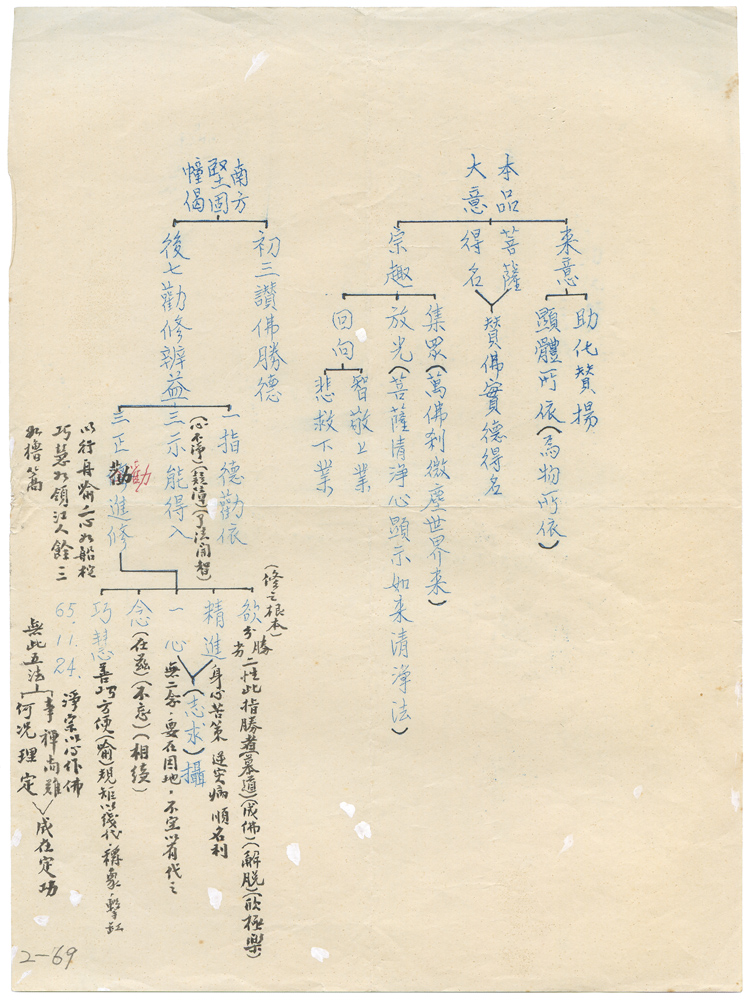 本品
大意
来意
助化贊揚
顯體所依(為物所依)
菩薩
得名
贊佛實德得名
宗趣
集眾(萬佛刹微塵世界来)
放光(菩薩清淨心顯示如来清淨法)
回向
智敬上業
悲救下業
南方
堅固
幢偈
初三讚佛勝德
後七勸修辨益
一指德勸依
(心不淨)(疑障)(了法開智)
三示能得入
三正勸進修
勸
以行舟喻一心如船柁
巧慧如領江人餘三
如櫓篙
(修之根本)
欲分勝劣
二性此指勝者慕道)(成佛)(解脱)(欣極樂)
精進
身心苦策 逆灾病 順名利
一心
無二念,要在因地,不宜以有代之
(志求)攝
念
(在兹)(不忘)(相續)
巧慧
善巧方便(喻)規矩以
稱象
65.11.24.
淨宗以心作佛
無此五法
事禪尚難
何況理定
成在定功
2-69